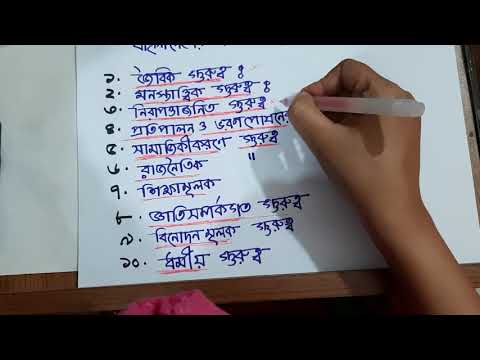 ১. জৈবিক গুরুত্ব :
২. মনস্তাত্ত্বিক গুরুত্ব :
৩. নিরাপত্তাজনিত গুরুত্ব
৪. প্রতিপালন ও ভরণপোষনের
৫. সামাজিকীকরণে গুরুত্ব
৬. রাজনৈতিক "
৭. শিক্ষামূলক
৮. জ্ঞাতিসম্পর্কগত গুরুত্ব
৯. বিনোদন মূলক গুরুত্ব
১০. ধর্মীয় গুরুত্ব